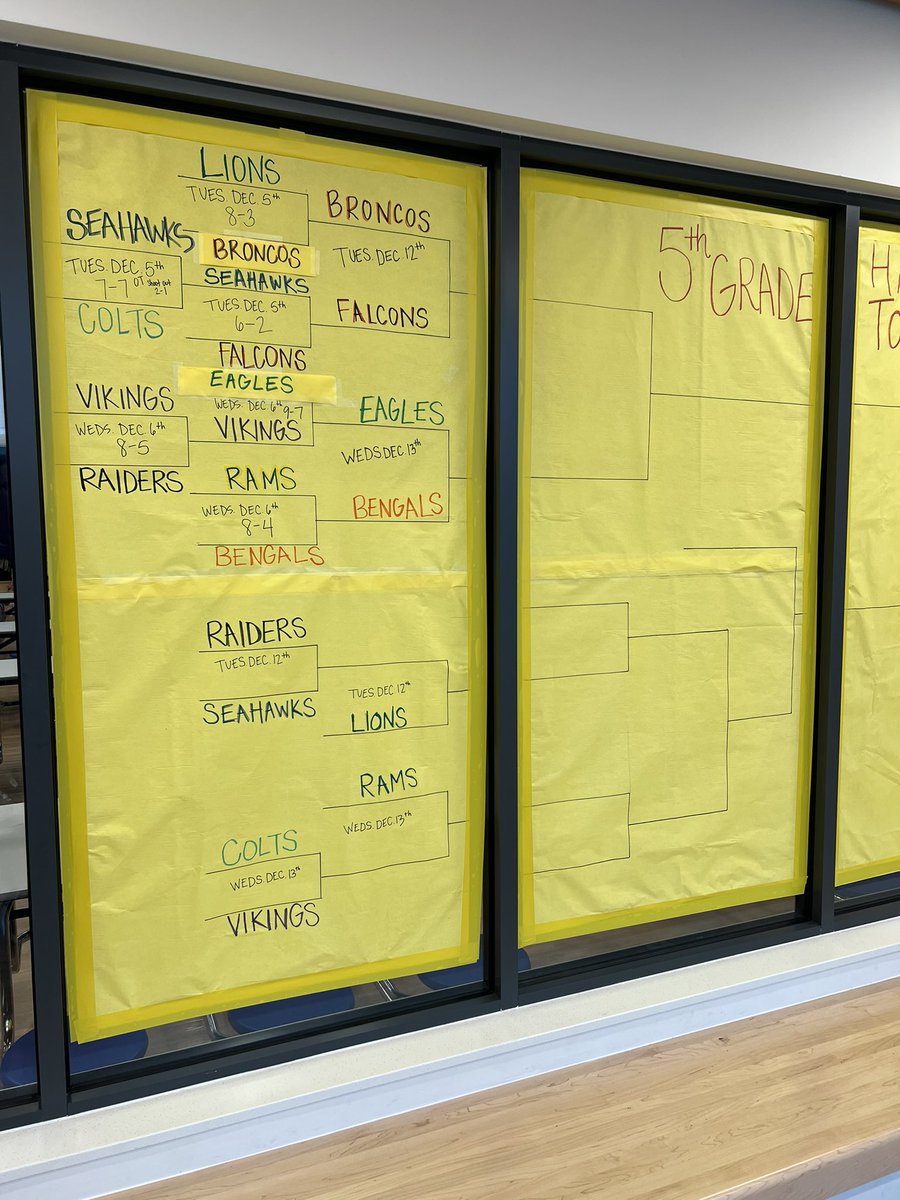 LIONS
TUES. DEC. 5th
8-3
BRONCOS
SEAHAWKS
TUES. DEC. 5th
7-7 OT Shoot out
2-1
COLTS
BRONCOS
TUES. DEC. 12th
FALCONS
SEAHAWKS
TUES. DEC 5th
6-2
FALCONS
EAGLES
WEDS. DEC 6th 9-7
VIKINGS
VIKINGS
WEDS. DEC. 6th
8-5
RAIDERS
EAGLES
WEDS DEC. 13th
BENGALS
RAMS
WEDS. DEC. 6th
8-4
BENGALS
RAIDERS
TUES. DEC. 12th
SEAHAWKS
TUES. DEC 12th
LIONS
RAMS
WEDS. DEC. 13th
COLTS
WEDS. DEC. 13th
VIKINGS
5th GRADE